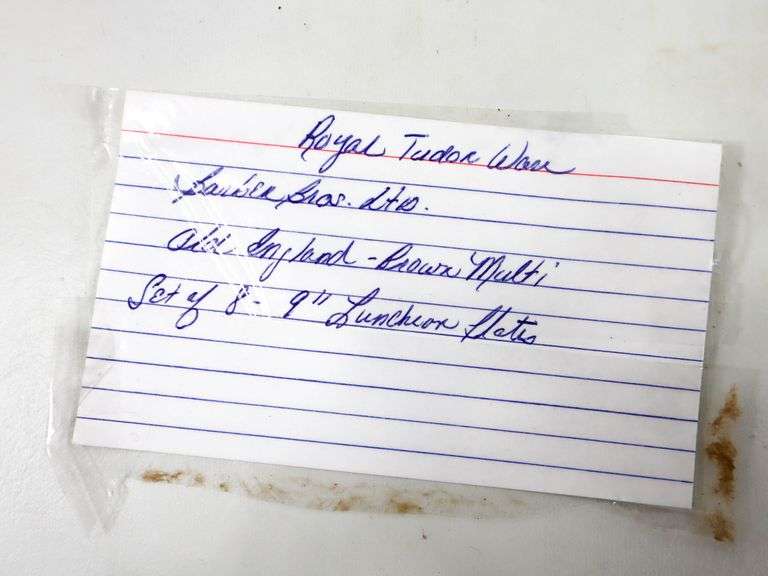 Royal Tudor Ware
Barker Bros. Ltd.
Old England - Brown Multi
Set of 8 - 9" Luncheon Plates